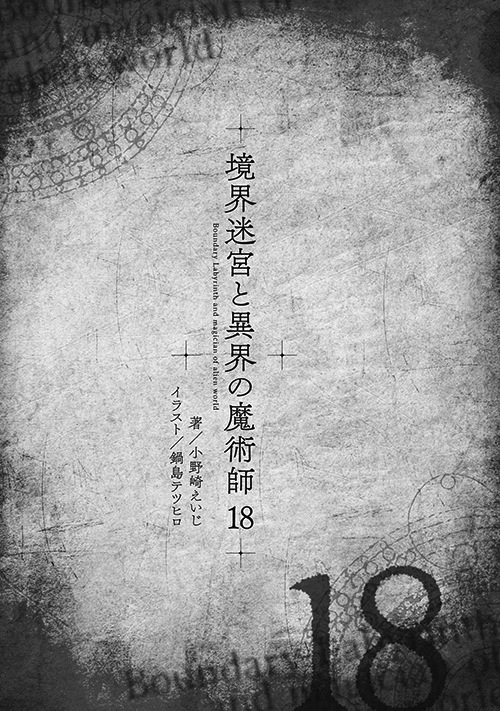 and magician of
alien world
境界迷宮と異界の魔術師 18
Boundary Labyrinth and magician of alien world
著／小野崎えいじ
イラスト／鍋島テツヒロ
18
Boundary Labyrinth
and magician